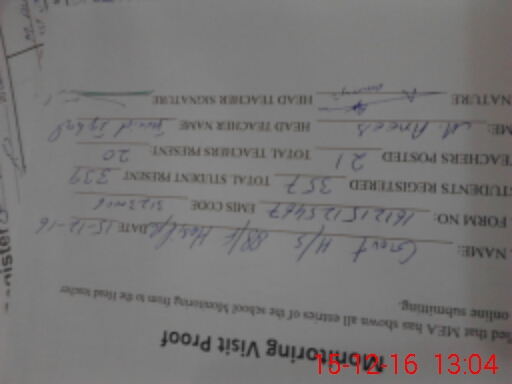 Monitoring Visit Proof
fied that MEA has shown all entries of the school Monitoring from to the Head teacher
online submitting.
NAME: Govt H/S 88/F Hasilpur DATE 15-12-16
FORM NO: 161215125467 EMIS CODE
STUDENTS REGISTERED 357 TOTAL STUDENT PRESENT 339
TEACHERS POSTED 21 TOTAL TEACHERS PRESENT: 20
ME: M. Anees HEAD TEACHER NAME Javid Iqbal
NATURE HEAD TEACHER SIGNATURE
egister
15-12-16 13:04